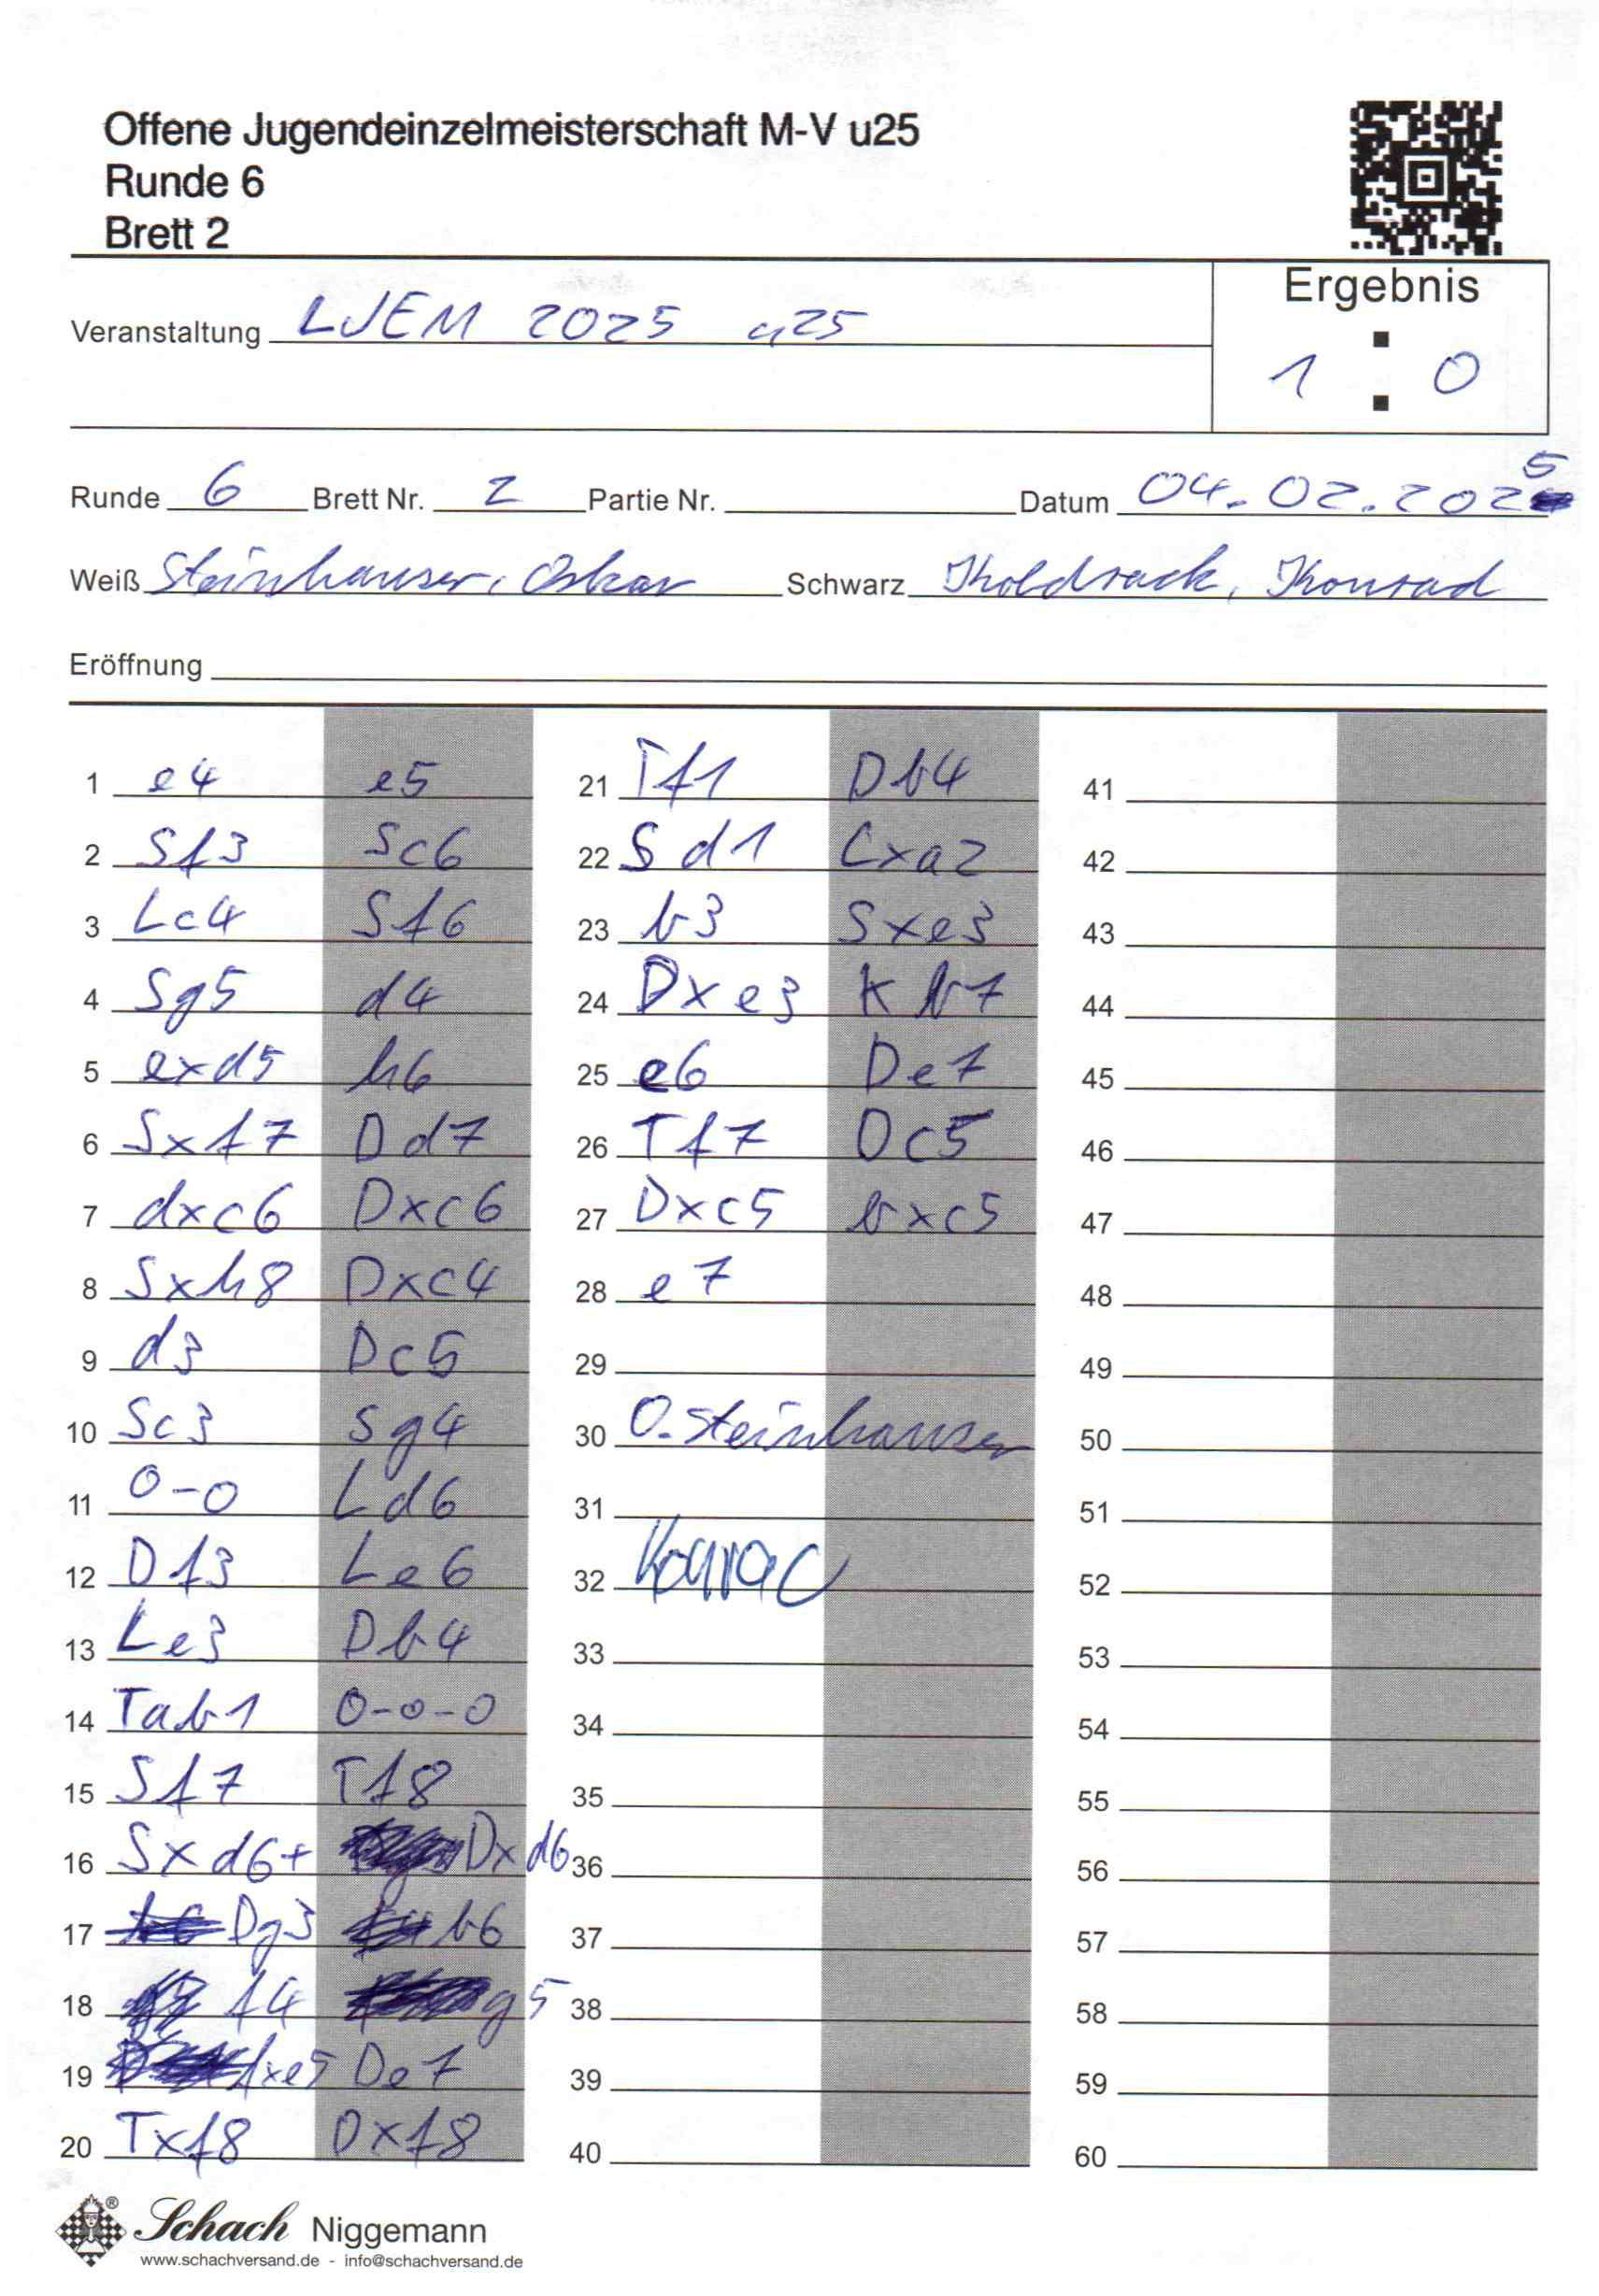 Offene Jugendeinzelmeisterschaft M-V u25
Runde 6
Brett 2
Veranstaltung LJEM 2025 u25
Ergebnis
1 : 0
Runde 6 Brett Nr. 2 Partie Nr. Datum 04.02.2025
Weiß Steinhauser, Oskar Schwarz Kholdrack, Konrad
Eröffnung
1 e4 e5
2 Sf3 Sc6
3 Lc4 Sf6
4 Sg5 d4
5 exd5 h6
6 Sxf7 Dd7
7 dxc6 Dxc6
8 Sxh8 Dxc4
9 d3 Dc5
10 Sc3 Sg4
11 0-0 Ld6
12 Df3 Le6
13 Le3 Db4
14 Tab1 0-0-0
15 Sf7 Tf8
16 Sxd6+ Dxd6
17 Dg3 b6
18 f4 g5
19 fxe5 De7
20 Txf8 Dxf8
21 Tf1 Db4
22 Sd1 Lxa2
23 b3 Sxe3
24 Dxe3 Kb7
25 e6 De7
26 Tf7 Dc5
27 Dxc5 bxc5
28 e7
29
30 O. Steinhauser
31
32 Konrad
33
34
35
36
37
38
39
40
41
42
43
44
45
46
47
48
49
50
51
52
53
54
55
56
57
58
59
60
Schach Niggemann
www.schachversand.de - info@schachversand.de